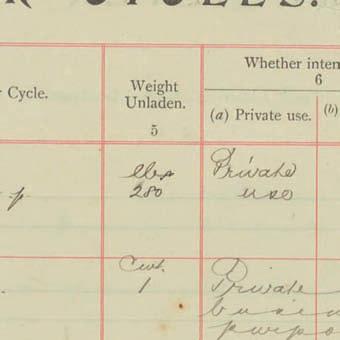 CYCLES.
r Cycle.
Weight
Unladen.
5
Whether inten
6
(a) Private use.
(b)
lbs
280
Private
use
p
Cwt.
1
Private
busin
purpo